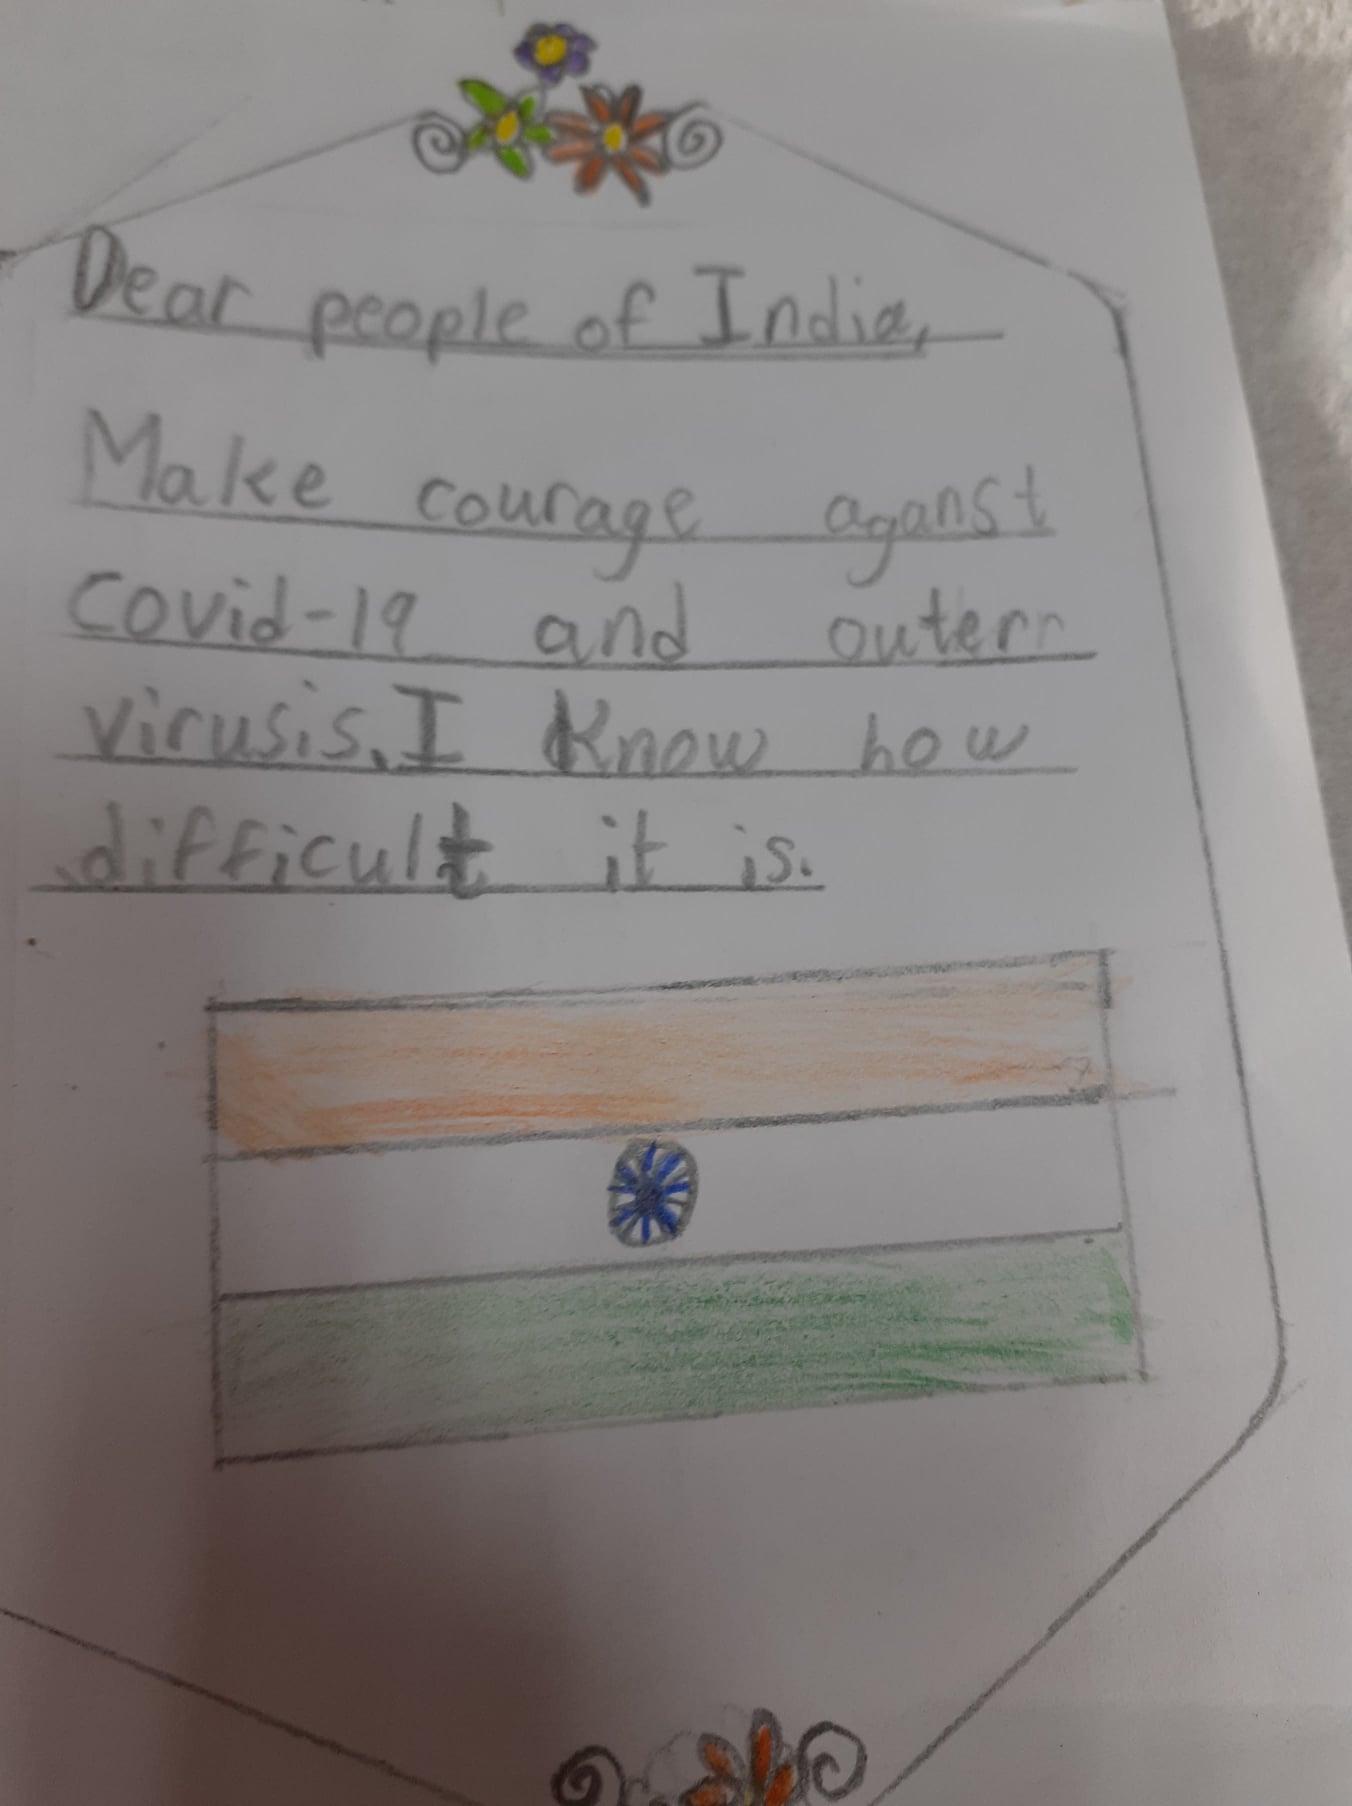 Dear people of India,
Make courage aganst
Covid-19 and outerr
virusis. I Know how
difficult it is.